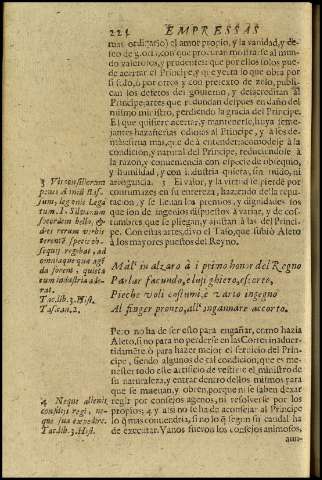 224 EMPRESSAS
mas ordinario) el amor propio, y la vanidad, y de-
seo de gloria, con que procuran mostrarse al mun-
do valerosos, y prudentes: que por ellos solos pue-
de acertar el Principe, y que yerra lo que obra por
si solo, ò por otros y con pretexto de zelo, publi-
can los defetos del govierno, y desacreditan al
Principe: artes que redundan despues en daño del
mismo ministro, perdiendo la gracia del Principe.
El que quisiere acertar, y mantenerse, huya seme-
jantes hazañerias odiosas al Principe, y a los de-
mas
condicion, y natural del Principe, reduciendole à
la razon, y conveniencia con especie de obsequio,
y humildad, y con industria quieta, sin ruido, ni
arrogancia. 3 El valor, y la virtud se pierde por
contumazes en su entereza, haziendo della repu-
tacion, y se llevan los premios, y dignidades los
que son de ingenios dispuestos à variar, y de cos-
tumbres que se pliegan, y ajustan à las del Princi-
pe. Con estas artes, dixo el Tasso, que subiò Aleto
à los mayores puestos del Reyno.
3 Vir consiliorum
Tac. lib. 3. Hist.
Mà l' in alzaro à i primi honor del Regno
Parlar facundo, e lusinghiero, e scorto,
Pieghevoli costumi, e vario ingegno
Al finger pronto, all' ingannare accorto.
Pero no ha de ser esto para engañar, como hazia
Aleto, sino para no perderse en las Cortes inadver-
tidamẽte, ò para hazer mejor el servicio del Princi-
pe, siendo algunos de tal condicion, que es me-
nester todo este artificio de vestirse el ministro de
su naturaleza, y entrar dentro dellos mismos para
que se muevan, y obren, porque ni se saben dexar
regir por consejos agenos, ni resolverse por los
propios; 4 y assi no se ha de aconsejar al Principe
lo q̃ mas convendria, si no lo q̃ segun su caudal ha
de executar. Vanos fueron los consejos animosos,
4 Neque alienis
consilijs regi, ne-
que sua expedire.
Tac. lib. 3. Hist.
aun-